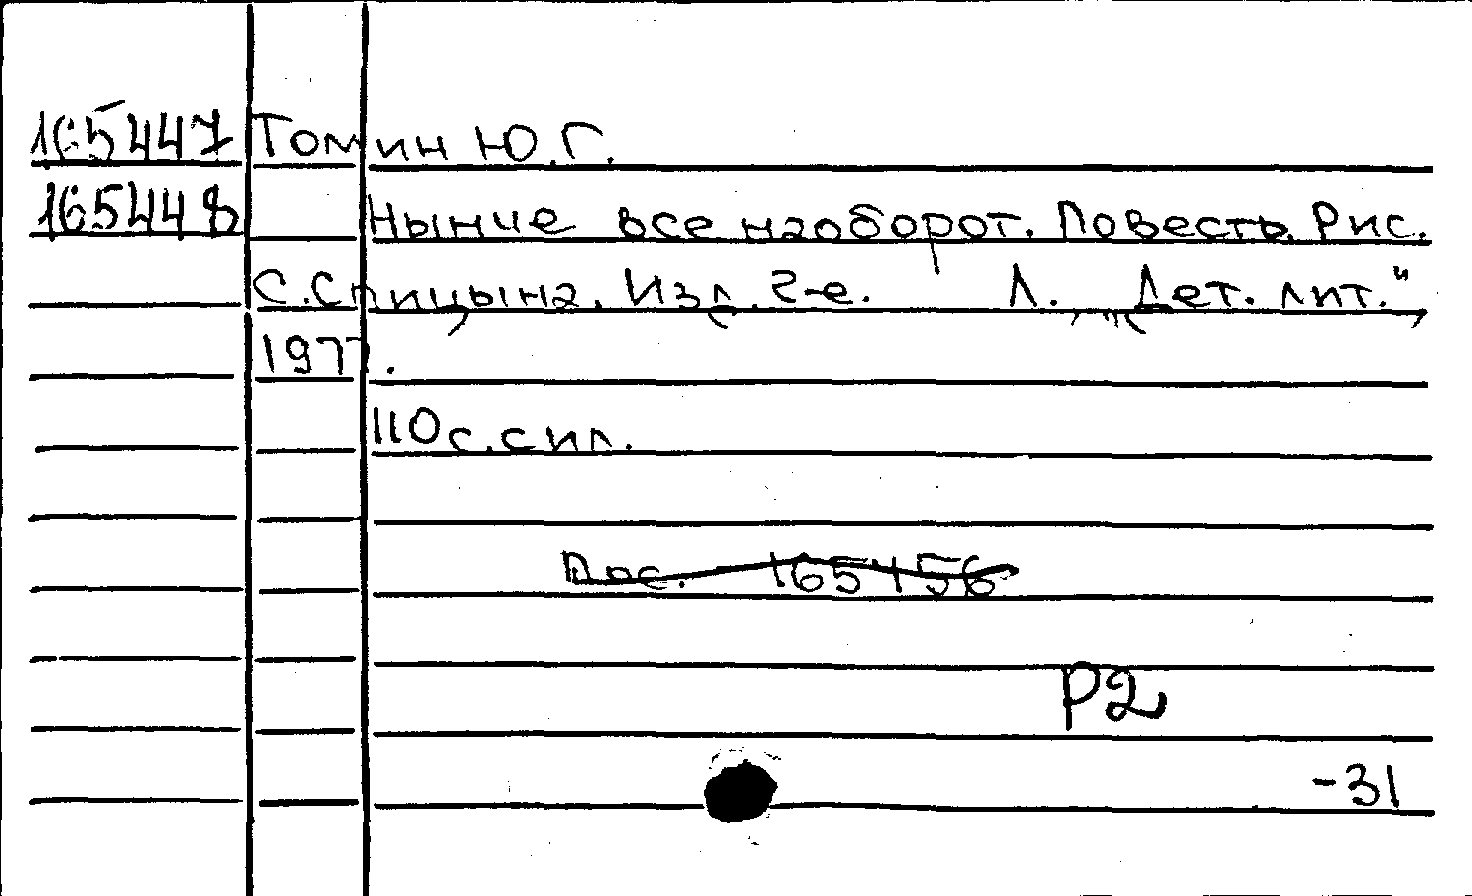 165447 Томин Ю.Г.
165448 Нынче все наоборот. Повесть. Рис.
С.Спицына. Изд. 2-е. Л., „Дет. лит.",
1977.
110 с. с ил.
165156
Р2
-31